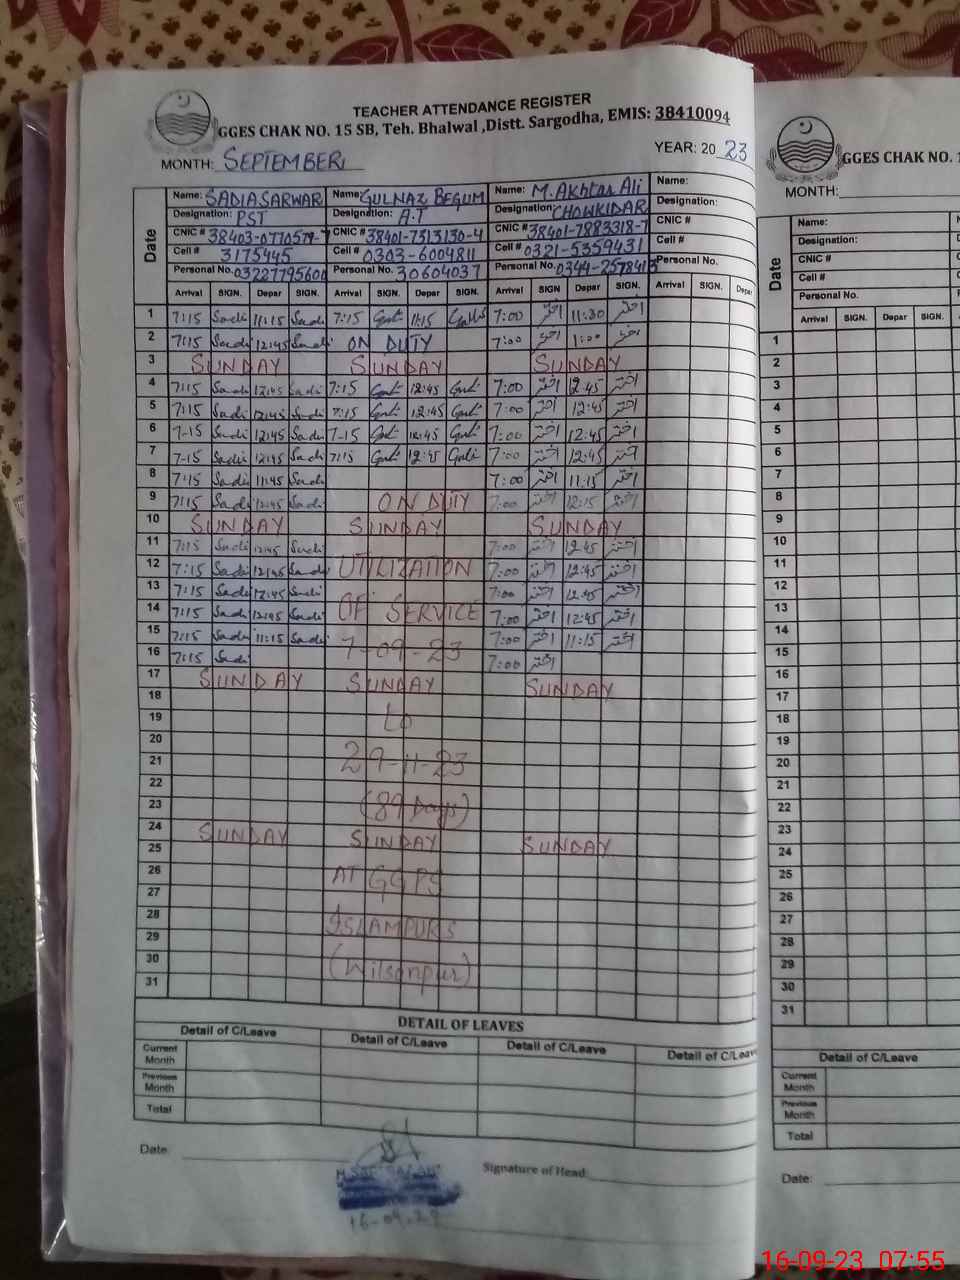 TEACHER ATTENDANCE REGISTER
GGES CHAK NO. 15 SB, Teh. Bhalwal ,Distt. Sargodha, EMIS: 38410094
MONTH: SEPTEMBER YEAR: 20 23
Name: SADIA SARWAR Name: GULNAZ BEGUM Name: M. Akhtar Ali Name:
Designation: PST Designation: A.T Designation: CHOWKIDAR Designation:
CNIC # 38403-0770579- CNIC # 38401-7313130-4 CNIC # 38401-7883318-7 CNIC #
Cell # 3175445 Cell # 0303-6004811 Cell # 0321-5359431 Cell #
Personal No. 03227795600 Personal No. 30604037 Personal No. 0344-2578413 Personal No.
Date Arrival SIGN. Depar SIGN. Arrival SIGN. Depar SIGN. Arrival SIGN Depar SIGN. Arrival SIGN. Depar
1 7:15 Sadi 11:15 Sadi 7:15 Gul 11:15 7:00 اختر 11:30 اختر
2 7:15 Sadi 12:45 Sadi ON DUTY 7:00 اختر 1:00 اختر
3 SUNDAY SUNDAY SUNDAY
4 7:15 Sadi 12:45 Sadi 7:15 Gul 12:45 Gul 7:00 اختر 12:45 اختر
5 7:15 Sadi 12:45 Sadi 7:15 Gul 12:45 Gul 7:00 اختر 12:45 اختر
6 7-15 Sadi 12:45 Sadi 7-15 Gul 12:45 Gul 7:00 اختر 12:45 اختر
7 7-15 Sadi 12:45 Sadi 7:15 Gul 12:45 Gul 7:00 اختر 12:45 اختر
8 7:15 Sadi 11:45 Sadi 7:00 اختر 11:15 اختر
9 7:15 Sadi 12:45 Sadi ON DUTY 7:00 اختر 12:15 اختر
10 SUNDAY SUNDAY SUNDAY
11 7:15 Sadi 12:45 Sadi 7:00 اختر 12:45 اختر
12 7:15 Sadi 12:45 Sadi UTILIZATION 7:00 اختر 12:45 اختر
13 7:15 Sadi 12:45 Sadi 7:00 اختر 12:45 اختر
14 7:15 Sadi 12:45 Sadi OF SERVICE 7:00 اختر 12:45 اختر
15 7:15 Sadi 11:15 Sadi 7-09-23 7:00 اختر 11:15 اختر
16 7:15 Sadi 7:00 اختر
17 SUNDAY SUNDAY SUNDAY
18
19 to
20
21 29-11-23
22
23 (89 Days)
24 SUNDAY SUNDAY SUNDAY
25
26 AT GGPS
27
28 ISLAMPURS
29
30 (Wilsonpur)
31
DETAIL OF LEAVES
Detail of C/Leave Detail of C/Leave Detail of C/Leave Detail of C/Leave
Current Month
Previous Month
Total
Date: Signature of Head:
GGES CHAK NO. 1
MONTH:
Name:
Designation:
CNIC #
Cell #
Personal No.
Date Arrival SIGN. Depar SIGN.
1
2
3
4
5
6
7
8
9
10
11
12
13
14
15
16
17
18
19
20
21
22
23
24
25
26
27
28
29
30
31
Detail of C/Leave
Current Month
Previous Month
Total
Date:
16-09-23 07:55